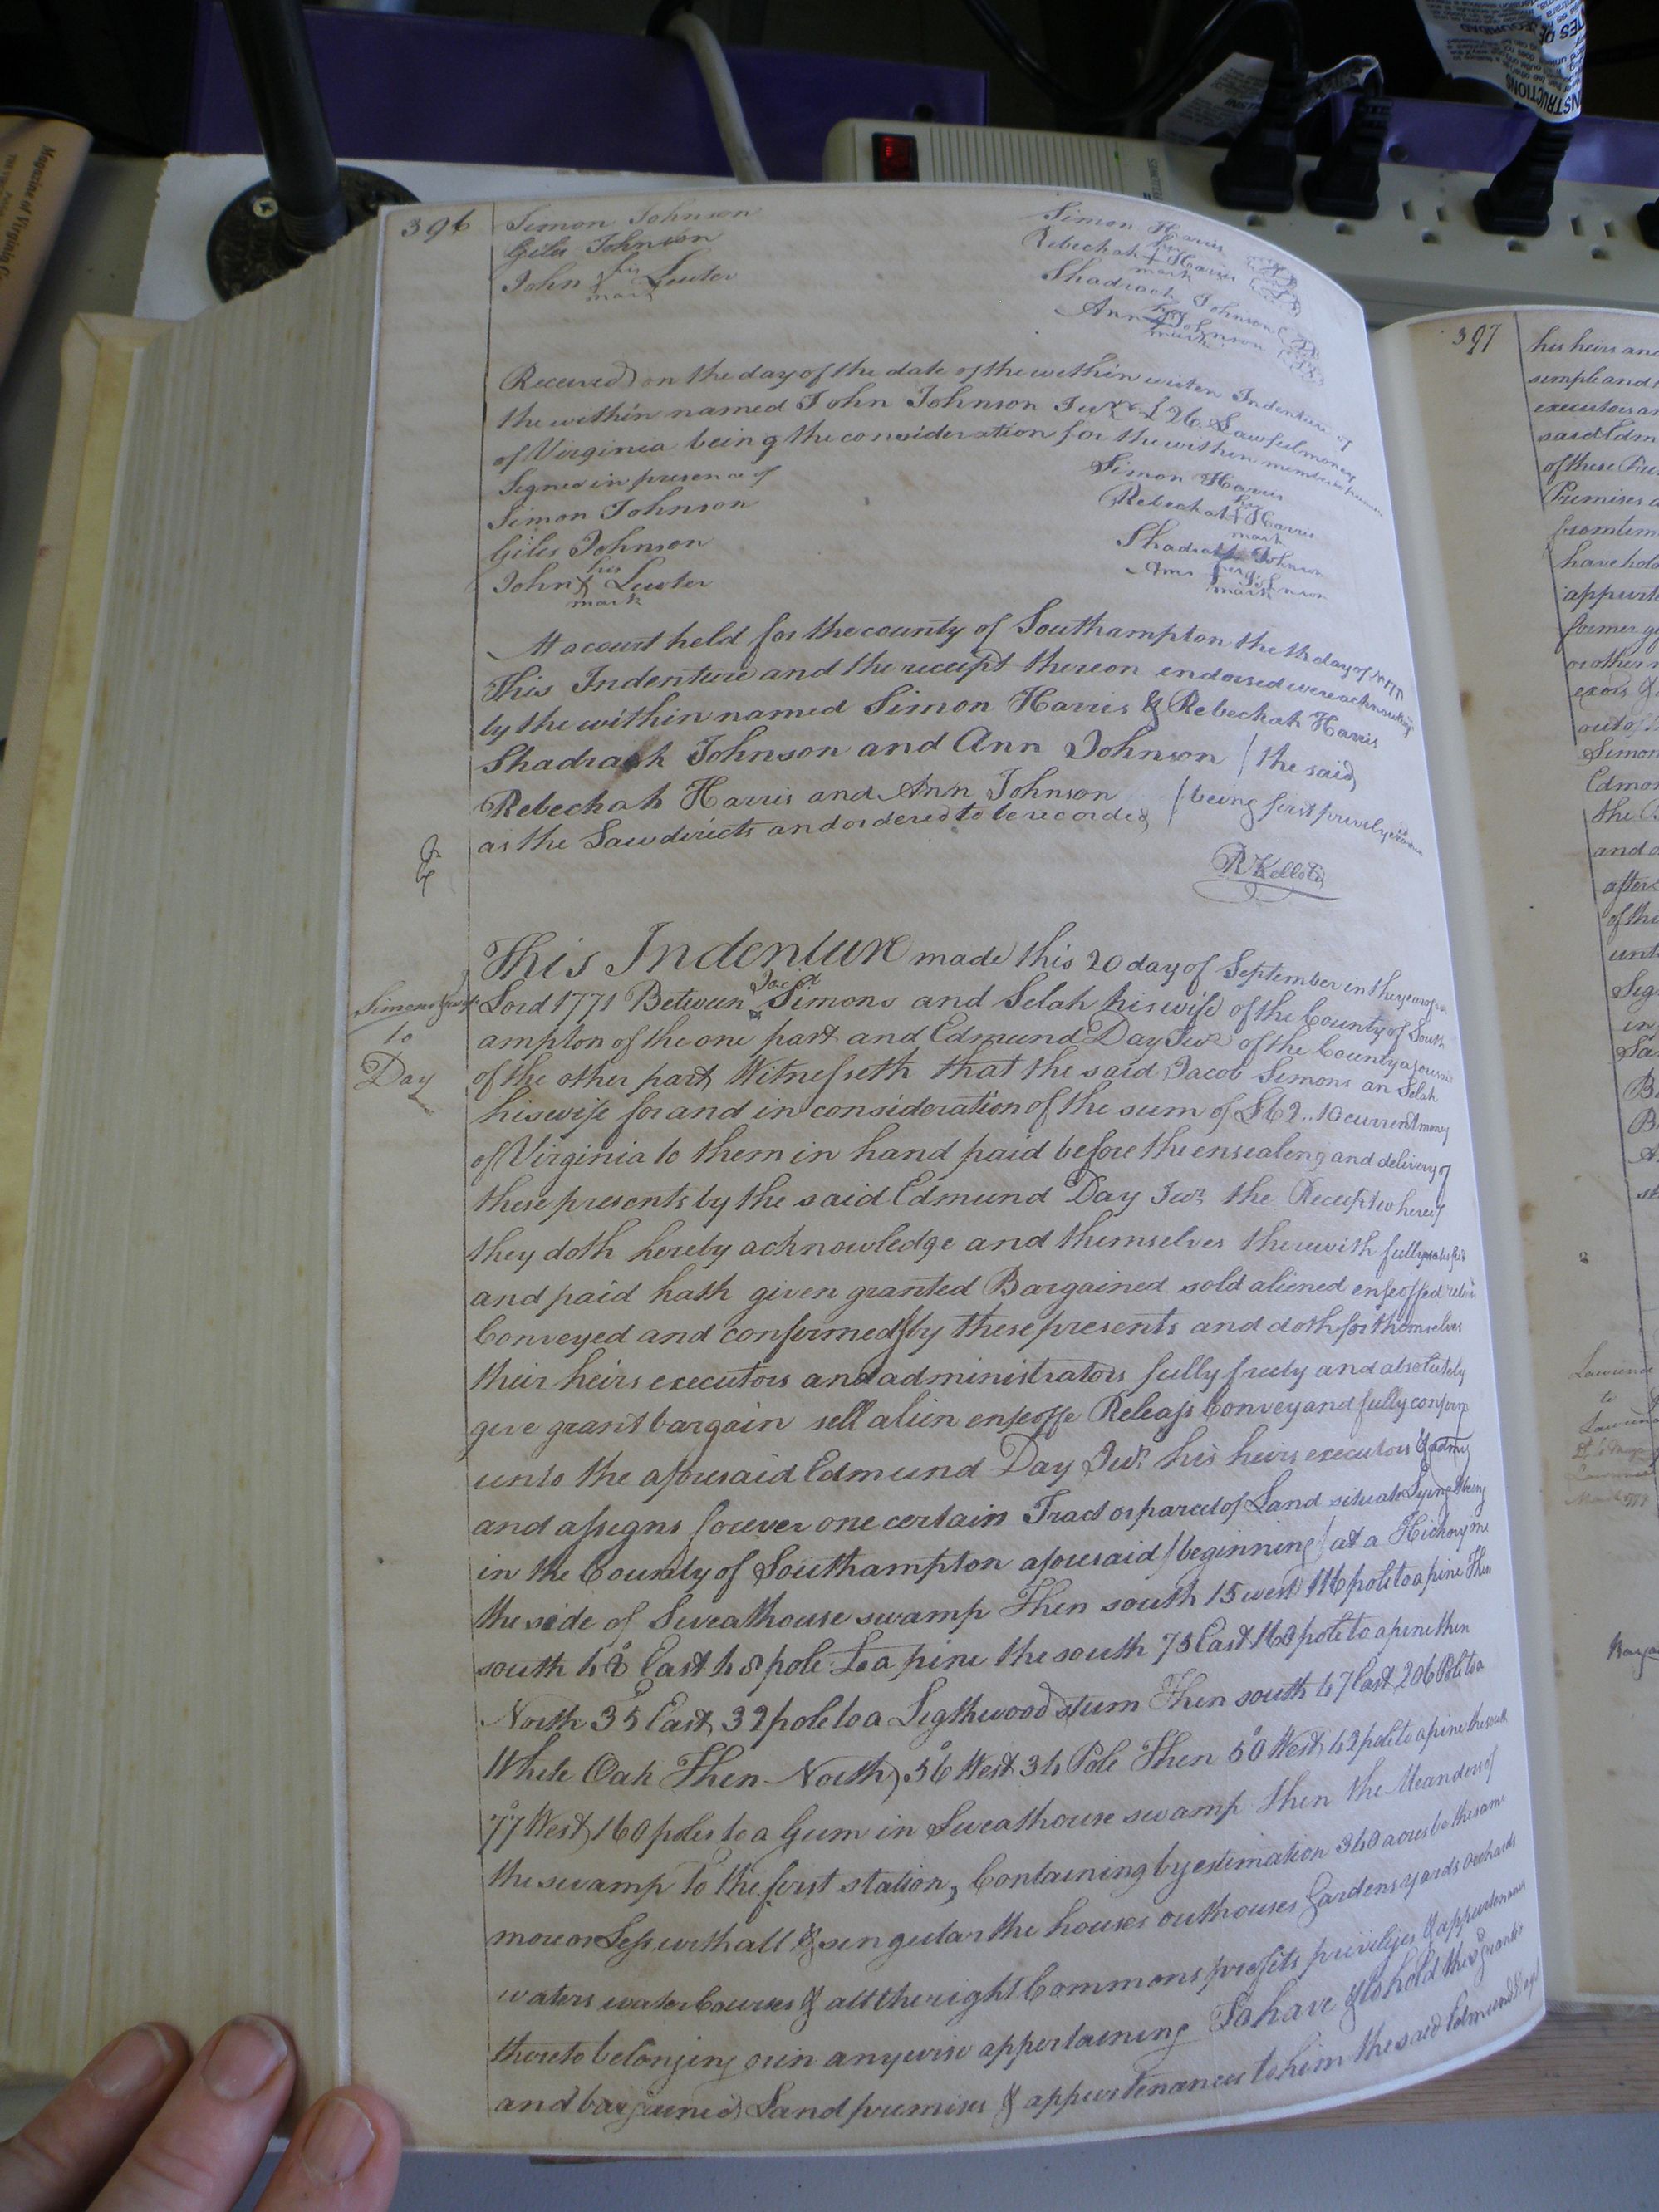 396
Simon Johnson
Giles Johnson
John his mark Lewter
Simon Harris
Rebeckah her mark Harris
Shadrach Johnson
Ann her mark Johnson
Received on the day of the date of the within writen Indenture of
the within named John Johnson Junr £26 Lawful money
of Virginia being the consideration for the within
Signed in presence of
Simon Johnson
Giles Johnson
John his mark Lewter
Simon Harris
Rebeckah her mark Harris
Shadrach Johnson
Ann her mark Johnson
At a court held for the county of Southampton the th day of
This Indenture and the receipt thereon endorsed were acknowledged
by the within named Simon Harris & Rebeckah Harris
Shadrach Johnson and Ann Johnson (the said
Rebeckah Harris and Ann Johnson (being first privily
as the Law directs and ordered to be recorded
R Kello
This Indenture made this 20 day of September in the year of
Simons
to
Day
Lord 1771 Between Jacob Simons and Selah his wife of the County of South
ampton of the one part and Edmund Day Junr of the County aforesaid
of the other part Witnesseth that the said Jacob Simons an Selah
his wife for and in consideration of the sum of £62..10 current money
of Virginia to them in hand paid before the ensealeng and delivery of
these presents by the said Edmund Day Junr the Receipt whereof
they doth hereby acknowledge and themselves therewith fully
and paid hath given granted Bargained sold aliened enfeoffed
Conveyed and confirmed by these presents and doth for themselves
their heirs executors and administrators fully freely and absolutely
give grant bargain sell alien enfeoffe Releass Convey and fully confirm
unto the aforesaid Edmund Day Junr his heirs executors & admrs
and assigns forever one certain Tract or parcel of Land situate Lying & being
in the County of Southampton aforesaid (beginning) at a Hickory one
the side of Sweathouse swamp Then south 15 west 116 pole to a pine Then
south 42 East 48 pole to a pine the south 75 East 160 pole to a pine then
North 35 East 32 pole to a Ligthwood stum Then south 47 East 206 Pole to a
White Oak Then North 56 West 34 Pole Then 50 West 42 pole to a pine the south
77 West 160 poles to a Gum in Sweathouse swamp then the Meanders of
the swamp to the first station, Containing by estimation 340 acres be the same
more or Less with all & sengular the houses outhouses Gardens yards orchards
waters water Courses & all the right Commons profits privileges & appurtenances
thereto belonging or in anywise appertaining To have & to hold the granted
and bargained Land premises & appurtenances to him the said Edmund Day
397
his heirs and
simple and
executors an
said Edm
of these
Premises
from tim
have hold
appurt
former g
or other
exors &
out of
Simon
Edmon
the
and
after
of the
unto
Sig
in
Lawrence
to
Magazine of Virginia
INSTRUCTIONS
FELLOWES